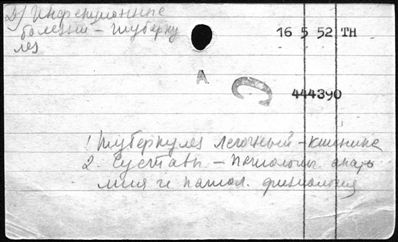 2) Инфекционные
болезни – туберку
лез
16 5 52 TH
A
C
444390
1 Туберкулез легочный – клиника
2. Суставы – патологич. анато
мия и патол. физиология